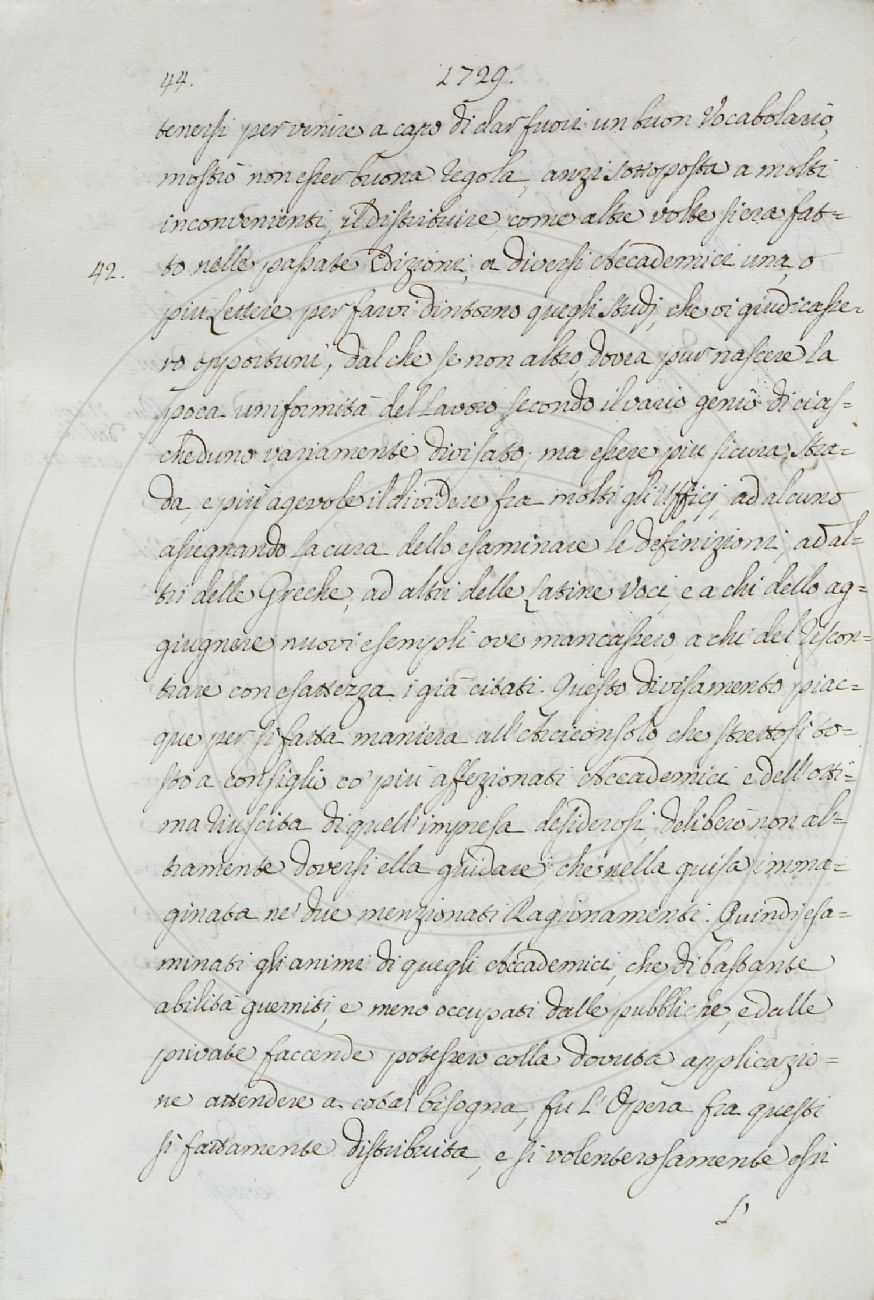 44. 1729.
tenersi per venire a capo di dar fuori un buon Vocabolario,
mostrò non esser buona regola, anzi sottoposta a molti
inconvenienti, il distribuire, come altre volte si era fat=
42. to nelle passate Edizioni, a diversi Accademici una, o
più Lettere per farvi dintorno quegli studj, che vi giudicasse=
ro opportuni, dal che se non altro dovea pur nascere la
poca uniformità del Lavoro, secondo il vario genio di cias=
cheduno variamente divisato; ma essere più sicura stra=
da, e più agevole il dividere fra molti gli Uffici, ad alcuno
assegnando la cura dello esaminare le definizioni, ad al=
tri delle Greche, ad altri delle Latine Voci, e a chi dello ag=
giugnere nuovi esempli ove mancassero, a chi del riscon=
trare con esattezza i già citati. Questo divisamento piac=
que per sì fatta maniera all'Arciconsolo, che strettosi to=
sto a consiglio co' più affezionati Accademici e dell'otti=
ma riuscita di quell'impresa desiderosi, deliberò non al=
tramente doversi ella guidare, che nella guisa imma=
ginata ne' due menzionati Ragionamenti. Quindi esa=
minati gli animi di quegli Accademici, che di bastante
abilità guerniti, e meno occupati dalle pubbliche, e dalle
private faccende potessero colla dovuta applicazio=
ne attendere a cotal bisogna, fu l'Opera fra questi
sì fattamente distribuita, e sì volenterosamente essi